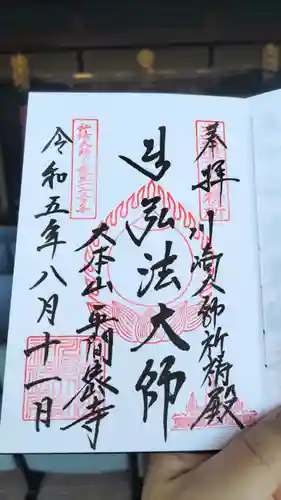 奉拝
川崎大師祈祷殿
弘法大師
大本山平間寺
令和五年八月十一日